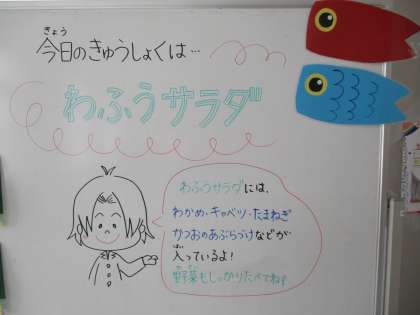 きょう
今日のきゅうしょくは…
わふうサラダ
わふうサラダには、
わかめ・キャベツ・たまねぎ
かつおのあぶらづけなどが
入っているよ!
野菜もしっかりたべてね